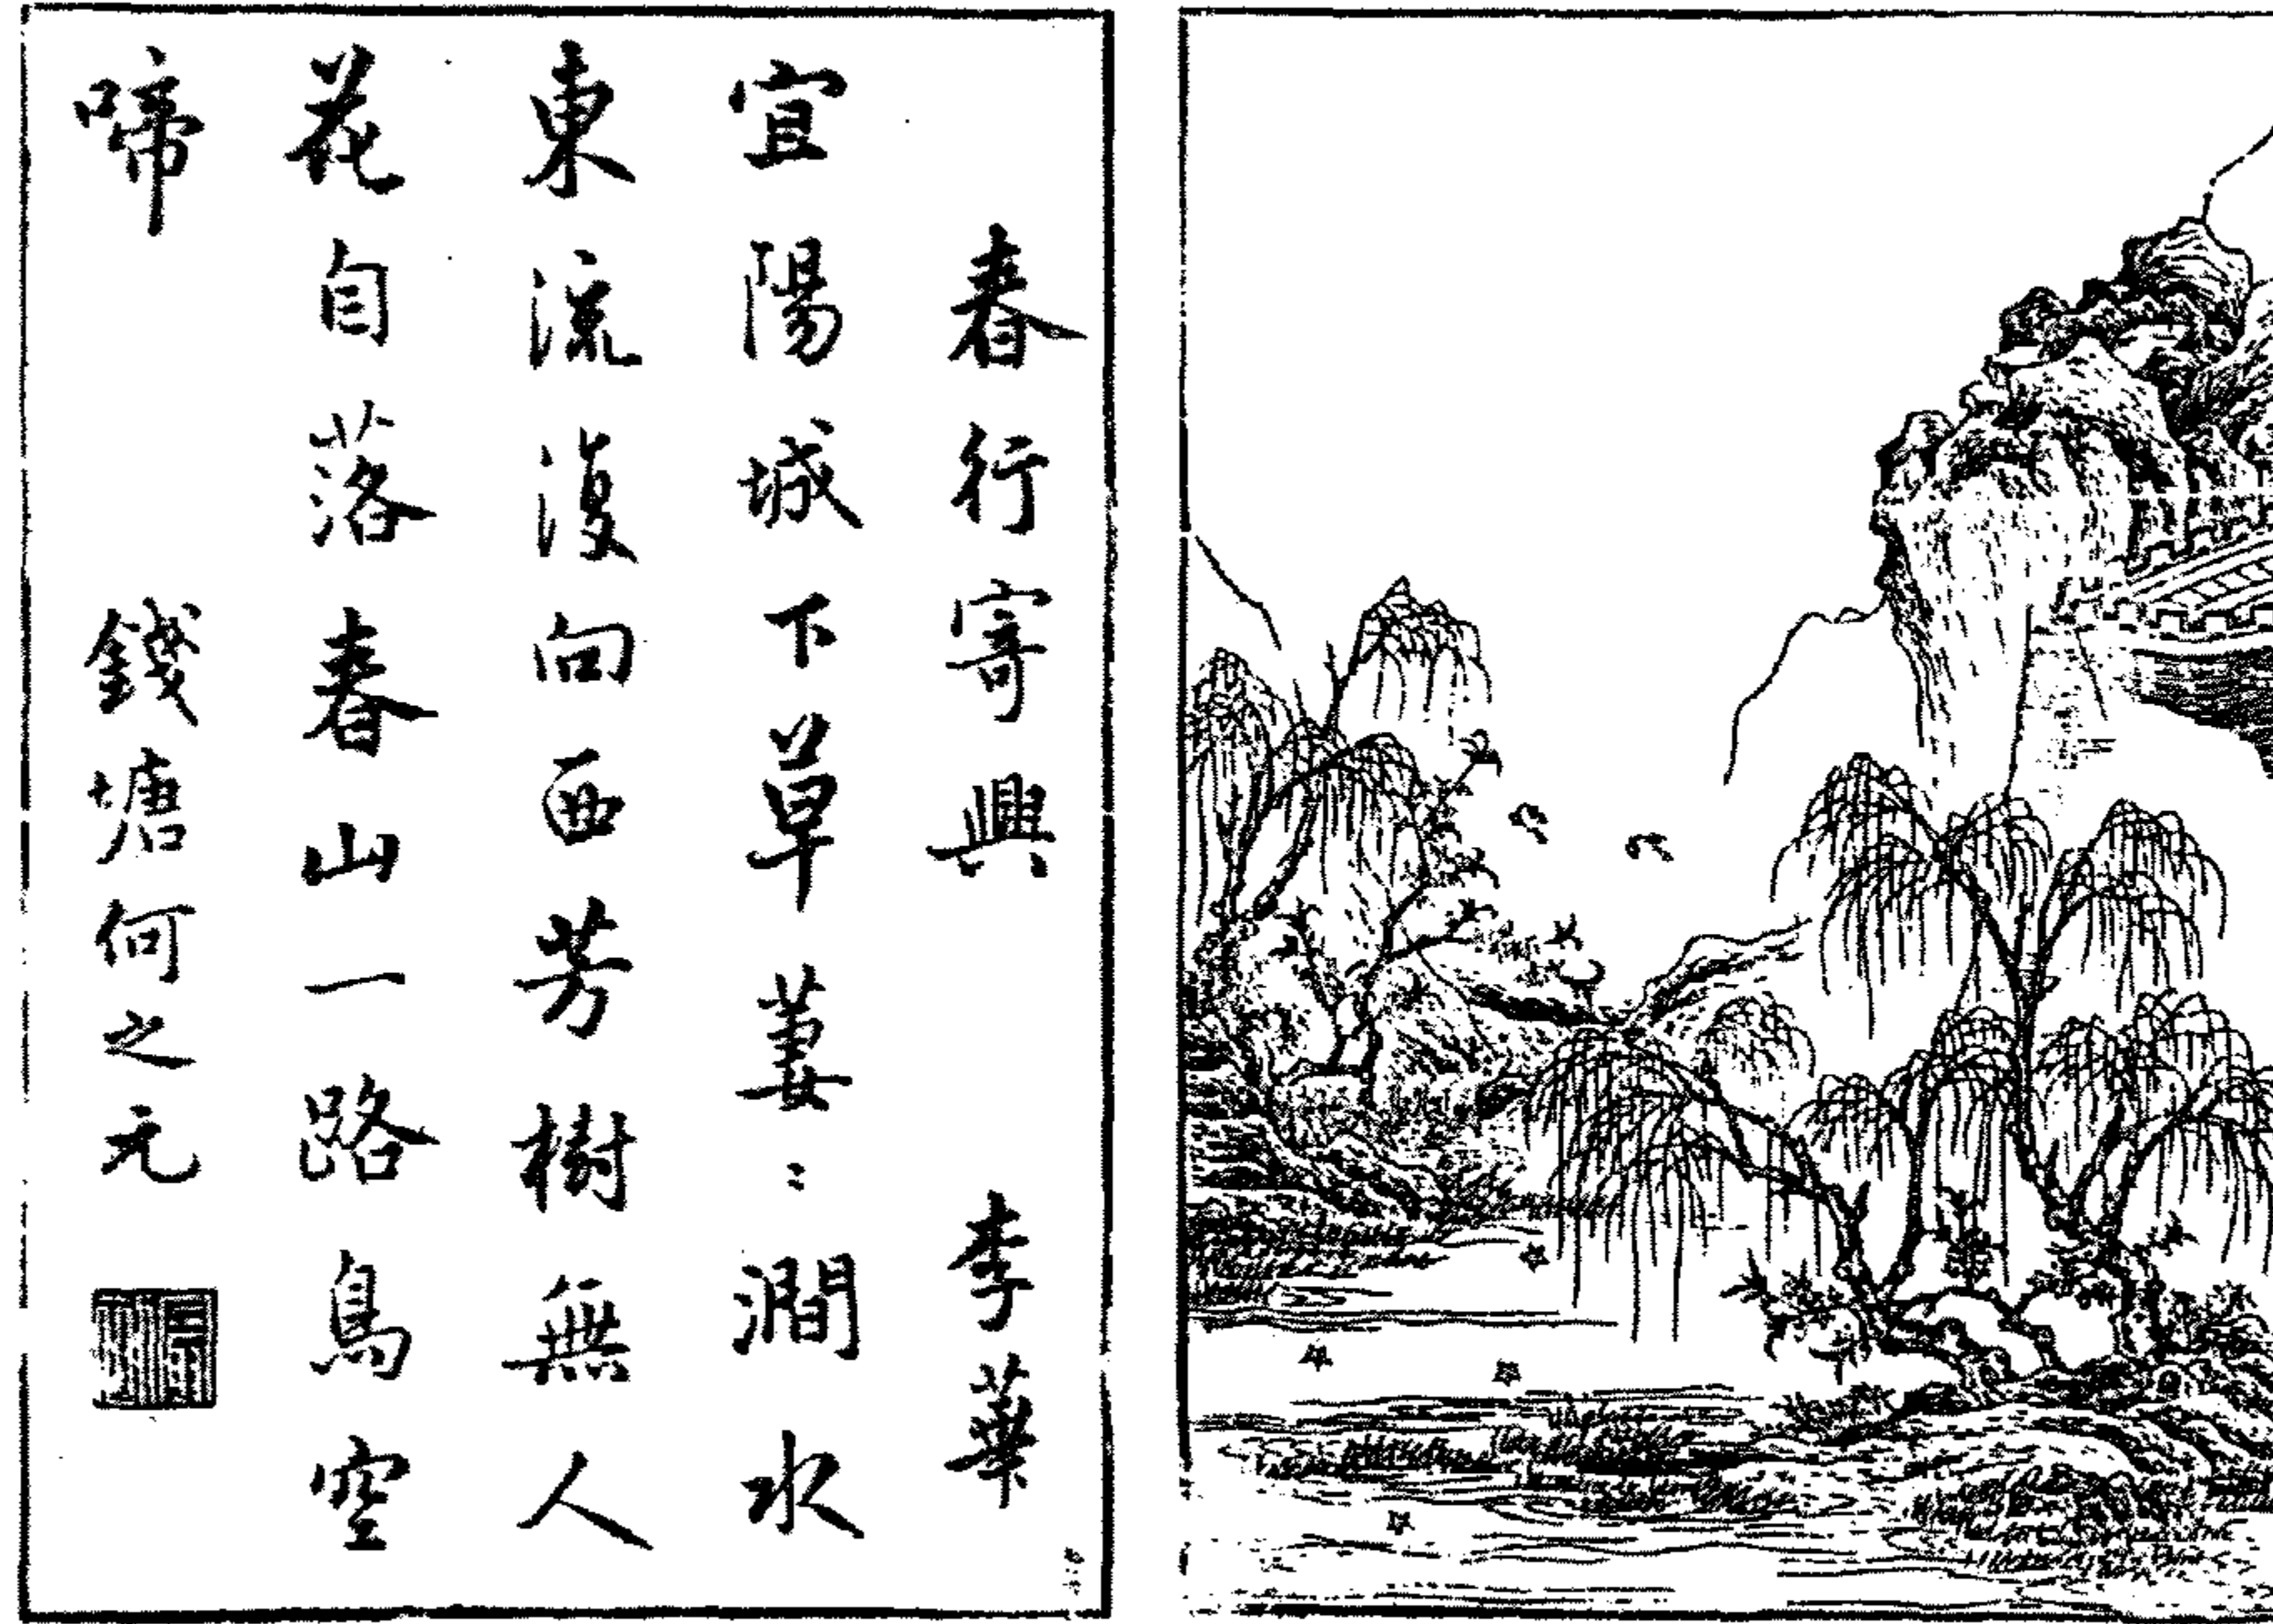 春行寄興 李華
宜陽城下草萋〻澗水
東流復向西芳樹無人
花自落春山一路鳥空
啼 錢塘何之元